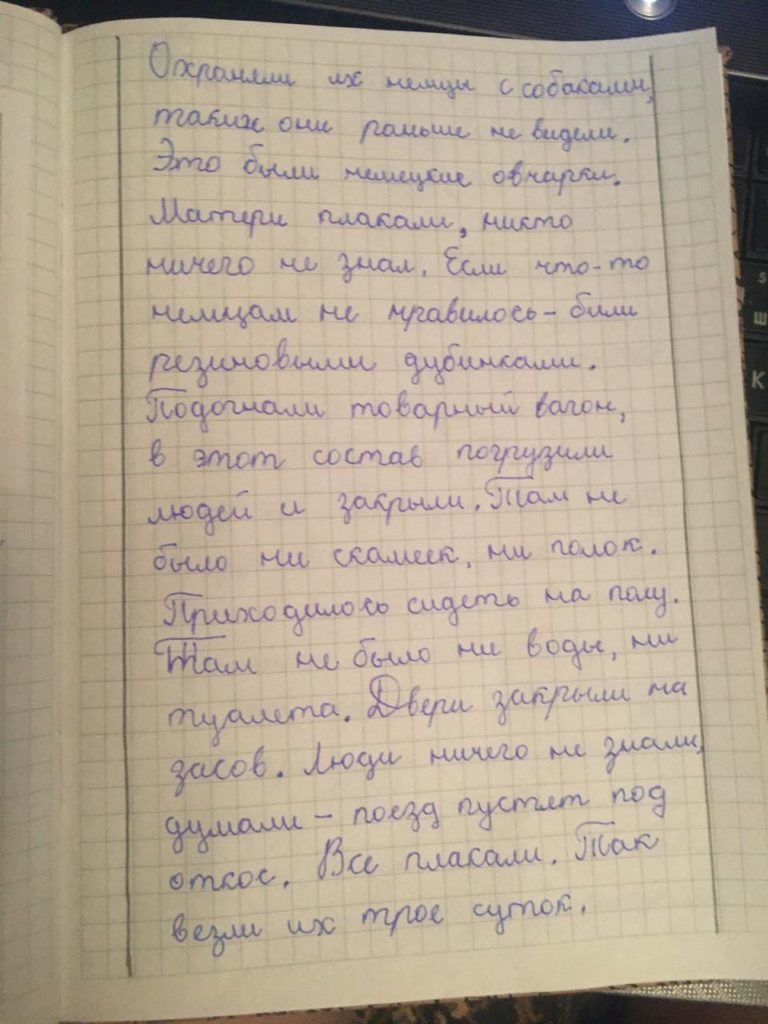 Охраняли их немцы с собаками,
таких они раньше не видели.
Это были немецкие овчарки.
Матери плакали, никто
ничего не знал. Если что-то
немцам не нравилось - били
резиновыми дубинками.
Подогнали товарный вагон,
в этот состав погрузили
людей и закрыли. Там не
было ни скамеек, ни полок.
Приходилось сидеть на полу.
Там не было ни воды, ни
туалета. Двери закрыли на
засов. Люди ничего не знали,
думали - поезд пустят под
откос. Все плакали. Так
везли их трое суток.
5
Ш
К